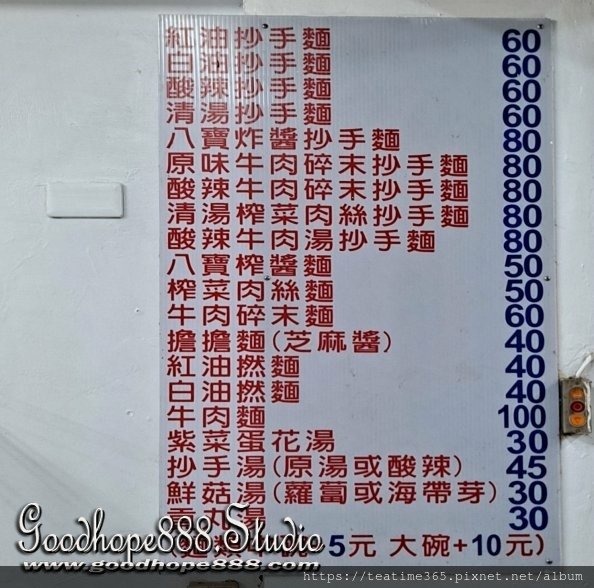 紅油抄手麵 60
白油抄手麵 60
酸辣抄手麵 60
清湯抄手麵 60
八寶炸醬抄手麵 80
原味牛肉碎末抄手麵 80
酸辣牛肉碎末抄手麵 80
清湯榨菜肉絲抄手麵 80
酸辣牛肉湯抄手麵 80
八寶榨醬麵 50
榨菜肉絲麵 50
牛肉碎末麵 60
擔擔麵(芝麻醬) 40
紅油撚麵 40
白油撚麵 40
牛肉麵 100
紫菜蛋花湯 30
抄手湯(原湯或酸辣) 45
鮮菇湯(蘿蔔或海帶芽) 30
丸湯 30
5元 大碗+10元)
Goodhope888.Studio
www.goodhope888.com
https://teatime365.pixnet.net/album